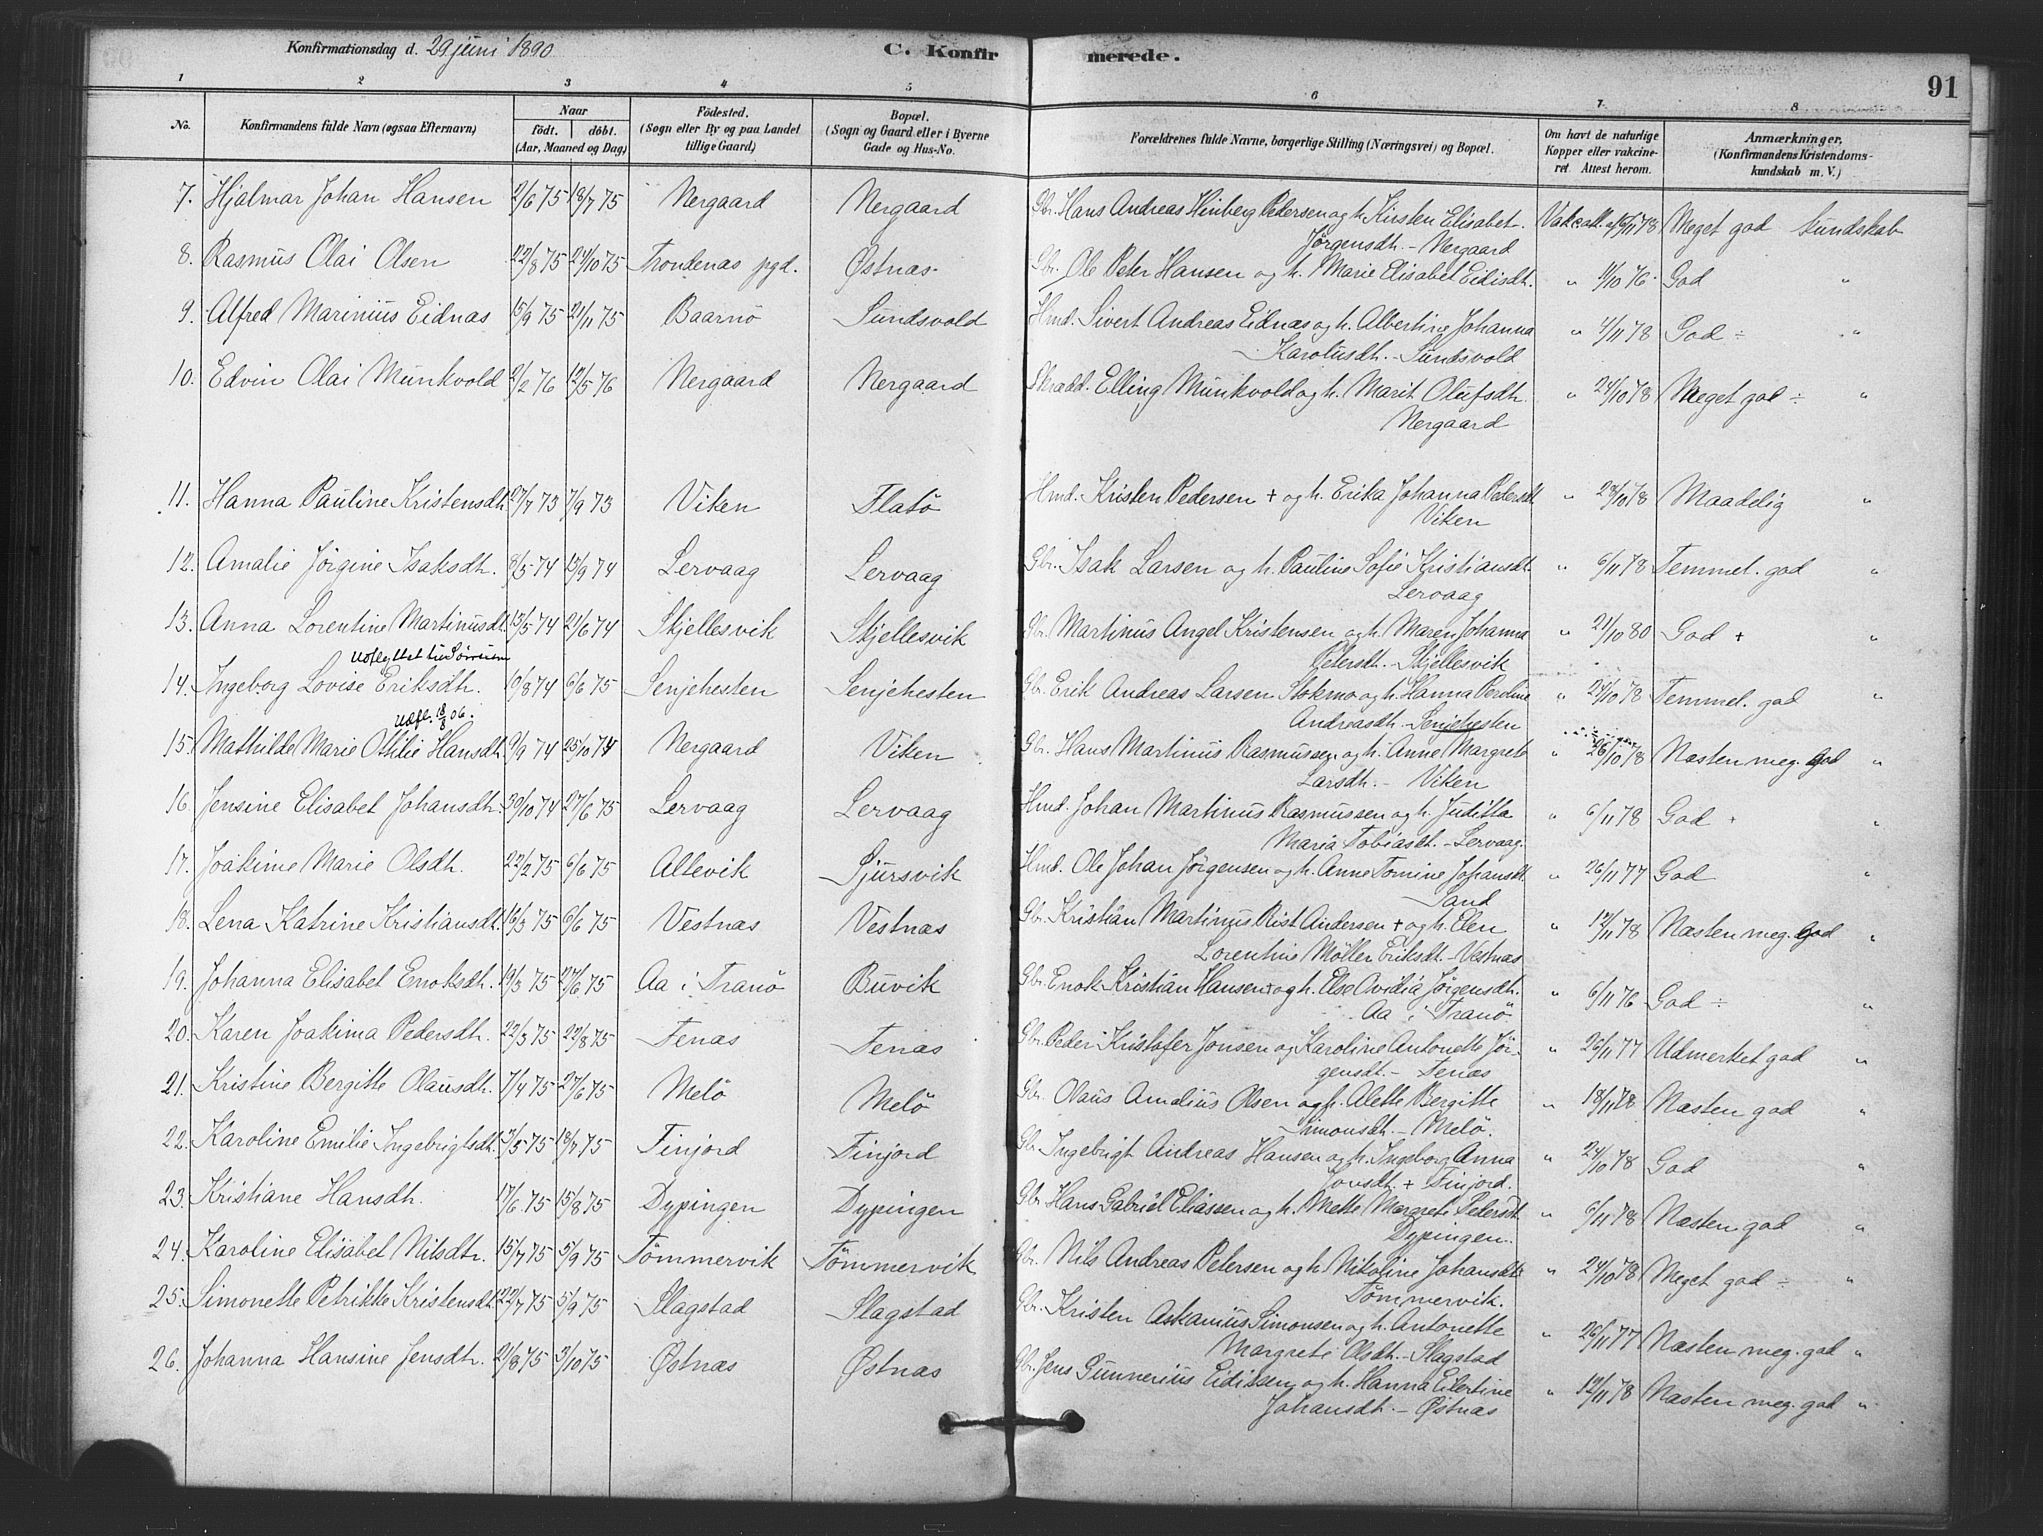 Konfirmationsdag d. 29 juni 1890
C. Konfirmerede.
91
1 2 3 4 5 6 7. 8
No. Konfirmandens fulde Navn (ogsaa Efternavn) Naar födt. döbt. (Aar, Maaned og Dag) Födested. (Sogn eller By og paa Landet tillige Gaard) Bopæl. (Sogn og Gaard eller i Byerne Gade og Hus-No. Forældrenes fulde Navne, borgerlige Stilling (Næringsvei) og Bopæl. Om havt de naturlige Kopper eller vakcineret. Attest herom. Anmærkninger, (Konfirmandens Kristendomskundskab m. V.)
7. Hjalmar Johan Hansen 2/6 75 18/7 75 Nergaard Nergaard Gbr. Hans Andreas Hinberg Petersen og h. Kirsten Elisabet Vakc. att. af 15/11 78 Meget god kundskab
Jørgensdh. - Nergaard
8. Rasmus Olai Olsen 22/8 75 24/10 75 Trondenas pgd. Østnas Gbr. Ole Peter Hansen og h. Marie Elisabet Eidisdh. " 11/10 76. God "
9. Alfred Marinius Eidnas 15/9 75 21/11 75 Baarnö Sundsvold Hmd. Sivert Andreas Eidnas og h. Albertine Johanna " 4/11 78 God ÷ "
Karolusdh. - Sundsvold
10. Edvin Olai Munkvold 2/2 76 12/5 76 Nergaard Nergaard Skrædd. Elling Munkvold og h. Marit Olufsdh. " 24/10 78 Meget god ÷ "
Nergaard
11. Hanna Pauline Kristensdh. 27/7 73 7/9 73 Viken Flatö Hmd. Kristen Pedersen + og h. Erika Johanna Pedersdt. " 28/10 78 Maadelig "
Viken
12. Amalie Jörgine Isaksdh. 8/5 74 13/9 74 Lervaag Lervaag Gbr. Isak Larsen og h. Pauline Sofie Kristiansdt. " 6/11 78 Temmel. god "
Lervaag
13. Anna Lorentine Martinusdt. 13/5 74 21/6 74 Skjellesvik Skjellesvik Gbr. Martinus Angel Kristensen og h. Maren Johanna " 21/10 80 God + "
Petersdt. - Skjellesvik
Udflyttet til Sörreisen
14. Ingeborg Lovise Eriksdh. 10/8 74 6/6 75 Senjehesten Senjehesten Gbr. Erik Andreas Larsen Stokmo og h. Hanna Peroline " 24/10 78 Temmel. god "
Andreasdh. - Senjehesten
Udfl. 18/8 06.
15. Mathilde Marie Othilie Hansdh. 9/9 74 25/10 74 Nergaard Viken Gbr. Hans Martinus Rasmussen og h. Anne Margrete " 26/10 78 Næsten meg. god "
Larsdh. - Viken
16. Jensine Elisabet Johansdh. 30/10 74 27/6 75 Lervaag Lervaag Hmd. Johan Martinus Rasmussen og h. Juditta " 6/11 78 God + "
Maria Tobiasdt. - Lervaag.
17. Joakime Marie Olsdh. 22/2 75 6/6 75 Altevik Sjursvik Hmd. Ole Johan Jörgensen og h. Anne Tomine Johansdt. " 26/11 77 God "
Sand
18. Lena Katrine Kristiansdt. 16/3 75 6/6 75 Vestnas Vestnas Gbr. Kristian Martinus Rist Andersen + og h. Elen " 12/11 78 Næsten meg. God "
Lorentine Möller Eriksdt. - Vestnas
19. Johanna Elisabet Enoksdh. 19/3 75 27/6 75 Aa i Tranö Buvik Gbr. Enok Kristian Hansen og h. Else Ovidia Jörgensdh. " 6/11 76 God ÷ "
Aa i Tranö
20. Karen Joakima Pedersdh. 22/3 75 22/8 75 Tenas Tenas Gbr. Peder Kristofer Jonsen og Karoline Antonette Jör- " 26/11 77 Udmerket god "
gensdt. - Tenas
21. Kristine Bergitte Olausdh. 7/4 75 27/6 75 Melö Melö Gbr. Olaus Amalius Olsen og h. Alette Bergitte " 18/11 78 Næsten god "
Simonsdt. - Melö.
22. Karoline Emilie Ingebrigtsdt. 3/5 75 18/7 75 Finjord Finjord Gbr. Ingebrigt Andreas Hansen og h. Ingeborg Anna " 24/10 78 God "
Jonsdt. + Finjord.
23. Kristiane Hansdh. 17/6 75 15/8 75 Dypingen Dypingen Gbr. Hans Gabriel Eliassen og h. Mette Margrete Pedersdt. " 6/11 78 Næsten god "
Dypingen.
24. Karoline Elisabet Nilsdtr. 15/7 75 5/9 75 Tömmervik Tömmervik Gbr. Nils Andreas Petersen og h. Nikoline Johansdt. " 24/10 78 Meget god ÷ "
Tömmervik.
25. Simonette Petrikke Kristensdt. 22/7 75 5/9 75 Slagstad Slagstad Gbr. Kristen Askanius Simonsen og h. Antonette " 26/11 77 Næsten meg. god "
Margrete Olsdh. - Slagstad
26. Johanna Hansine Jensdh. 21/8 75 3/10 75 Østnas Østnas Gbr. Jens Gunnerius Eidissen og h. Hanna Eilertine " 12/11 78 Næsten meg. god "
Johansdh. - Østnas